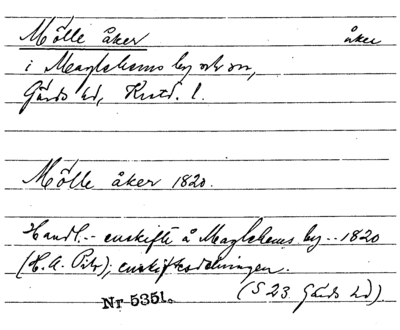 Mölle åker åker
i Maglehems by och sn,
Gärds hd, Krstd. l.
Mölle åker 1820.
Handl. - enskifte å Maglehems by - 1820
(H. A. Pihr); enskiftesdelningen.
(S 23 Gärds hd).
Nr 5351.